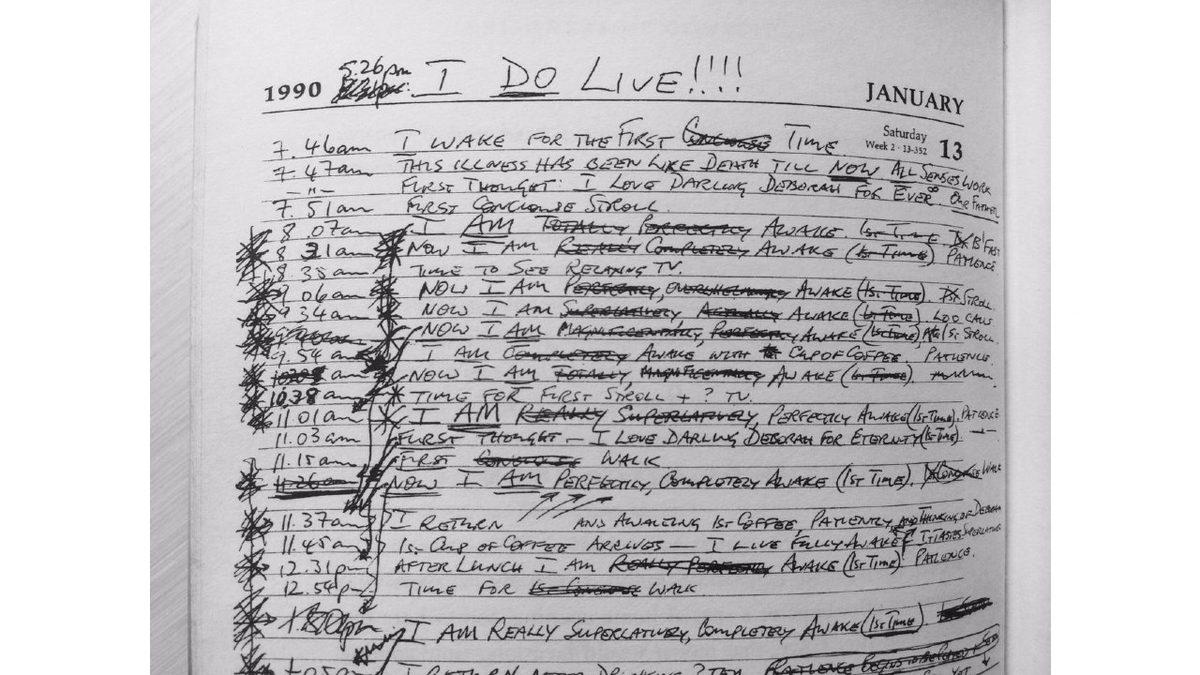 1990 5.26pm I DO LIVE!!!! JANUARY
Saturday
Week 2 · 13-352 13
7.46am I WAKE FOR THE FIRST CONCIOUSE TIME
7.47am THIS ILLNESS HAS BEEN LIKE DEATH TILL NOW ALL SENSES WORK
–"– FIRST THOUGHT: I LOVE DARLING DEBORAH FOR EVER ∞ OUR FATHER
7.51am FIRST CONCIOUSE STROLL.
8.07am I AM TOTALLY PERFECTLY AWAKE. 1ST TIME. B'FAST
8 31am NOW I AM REALLY COMPLETELY AWAKE (1ST TIME) PATIENCE
8.35am TIME TO SEE RELAXING TV.
9 06am NOW I AM PERFECTLY, OVERWHELMINGLY AWAKE (1ST TIME). 1ST STROLL.
9.34am NOW I AM SUPERLATIVELY ACTUALLY AWAKE (1ST TIME).
NOW I AM MAGNIFICENTLY, PERFECTLY AWAKE (1ST TIME), 1ST STROLL.
9.54 am I AM COMPLETELY AWAKE WITH CUP OF COFFEE. PATIENCE.
am NOW I AM TOTALLY, MAGNIFICENTLY AWAKE (1ST TIME).
1038am TIME FOR FIRST STROLL + ? TV.
11.01am I AM REALLY SUPERLATIVELY, PERFECTLY AWAKE (1ST TIME). PATIENCE
11.03am FIRST THOUGHT – I LOVE DARLING DEBORAH FOR ETERNITY (1ST TIME). –"–
11.15am FIRST CONCIOUSE WALK
11.26am NOW I AM PERFECTLY, COMPLETELY AWAKE (1ST TIME). WALK
11.37am I RETURN AND AWAITING 1ST COFFEE, PATIENTLY, AND THINKING OF DEBORAH
11.45am 1ST CUP OF COFFEE ARRIVES – I LIVE FULLY AWAKE IT TASTES SUPERLATIVE
12.31pm AFTER LUNCH I AM REALLY PERFECTLY AWAKE (1ST TIME). PATIENCE.
12.54pm TIME FOR 1ST CONCIOUSE WALK.
I AM REALLY SUPERLATIVELY, COMPLETELY AWAKE (1ST TIME).
I RETURN AFTER